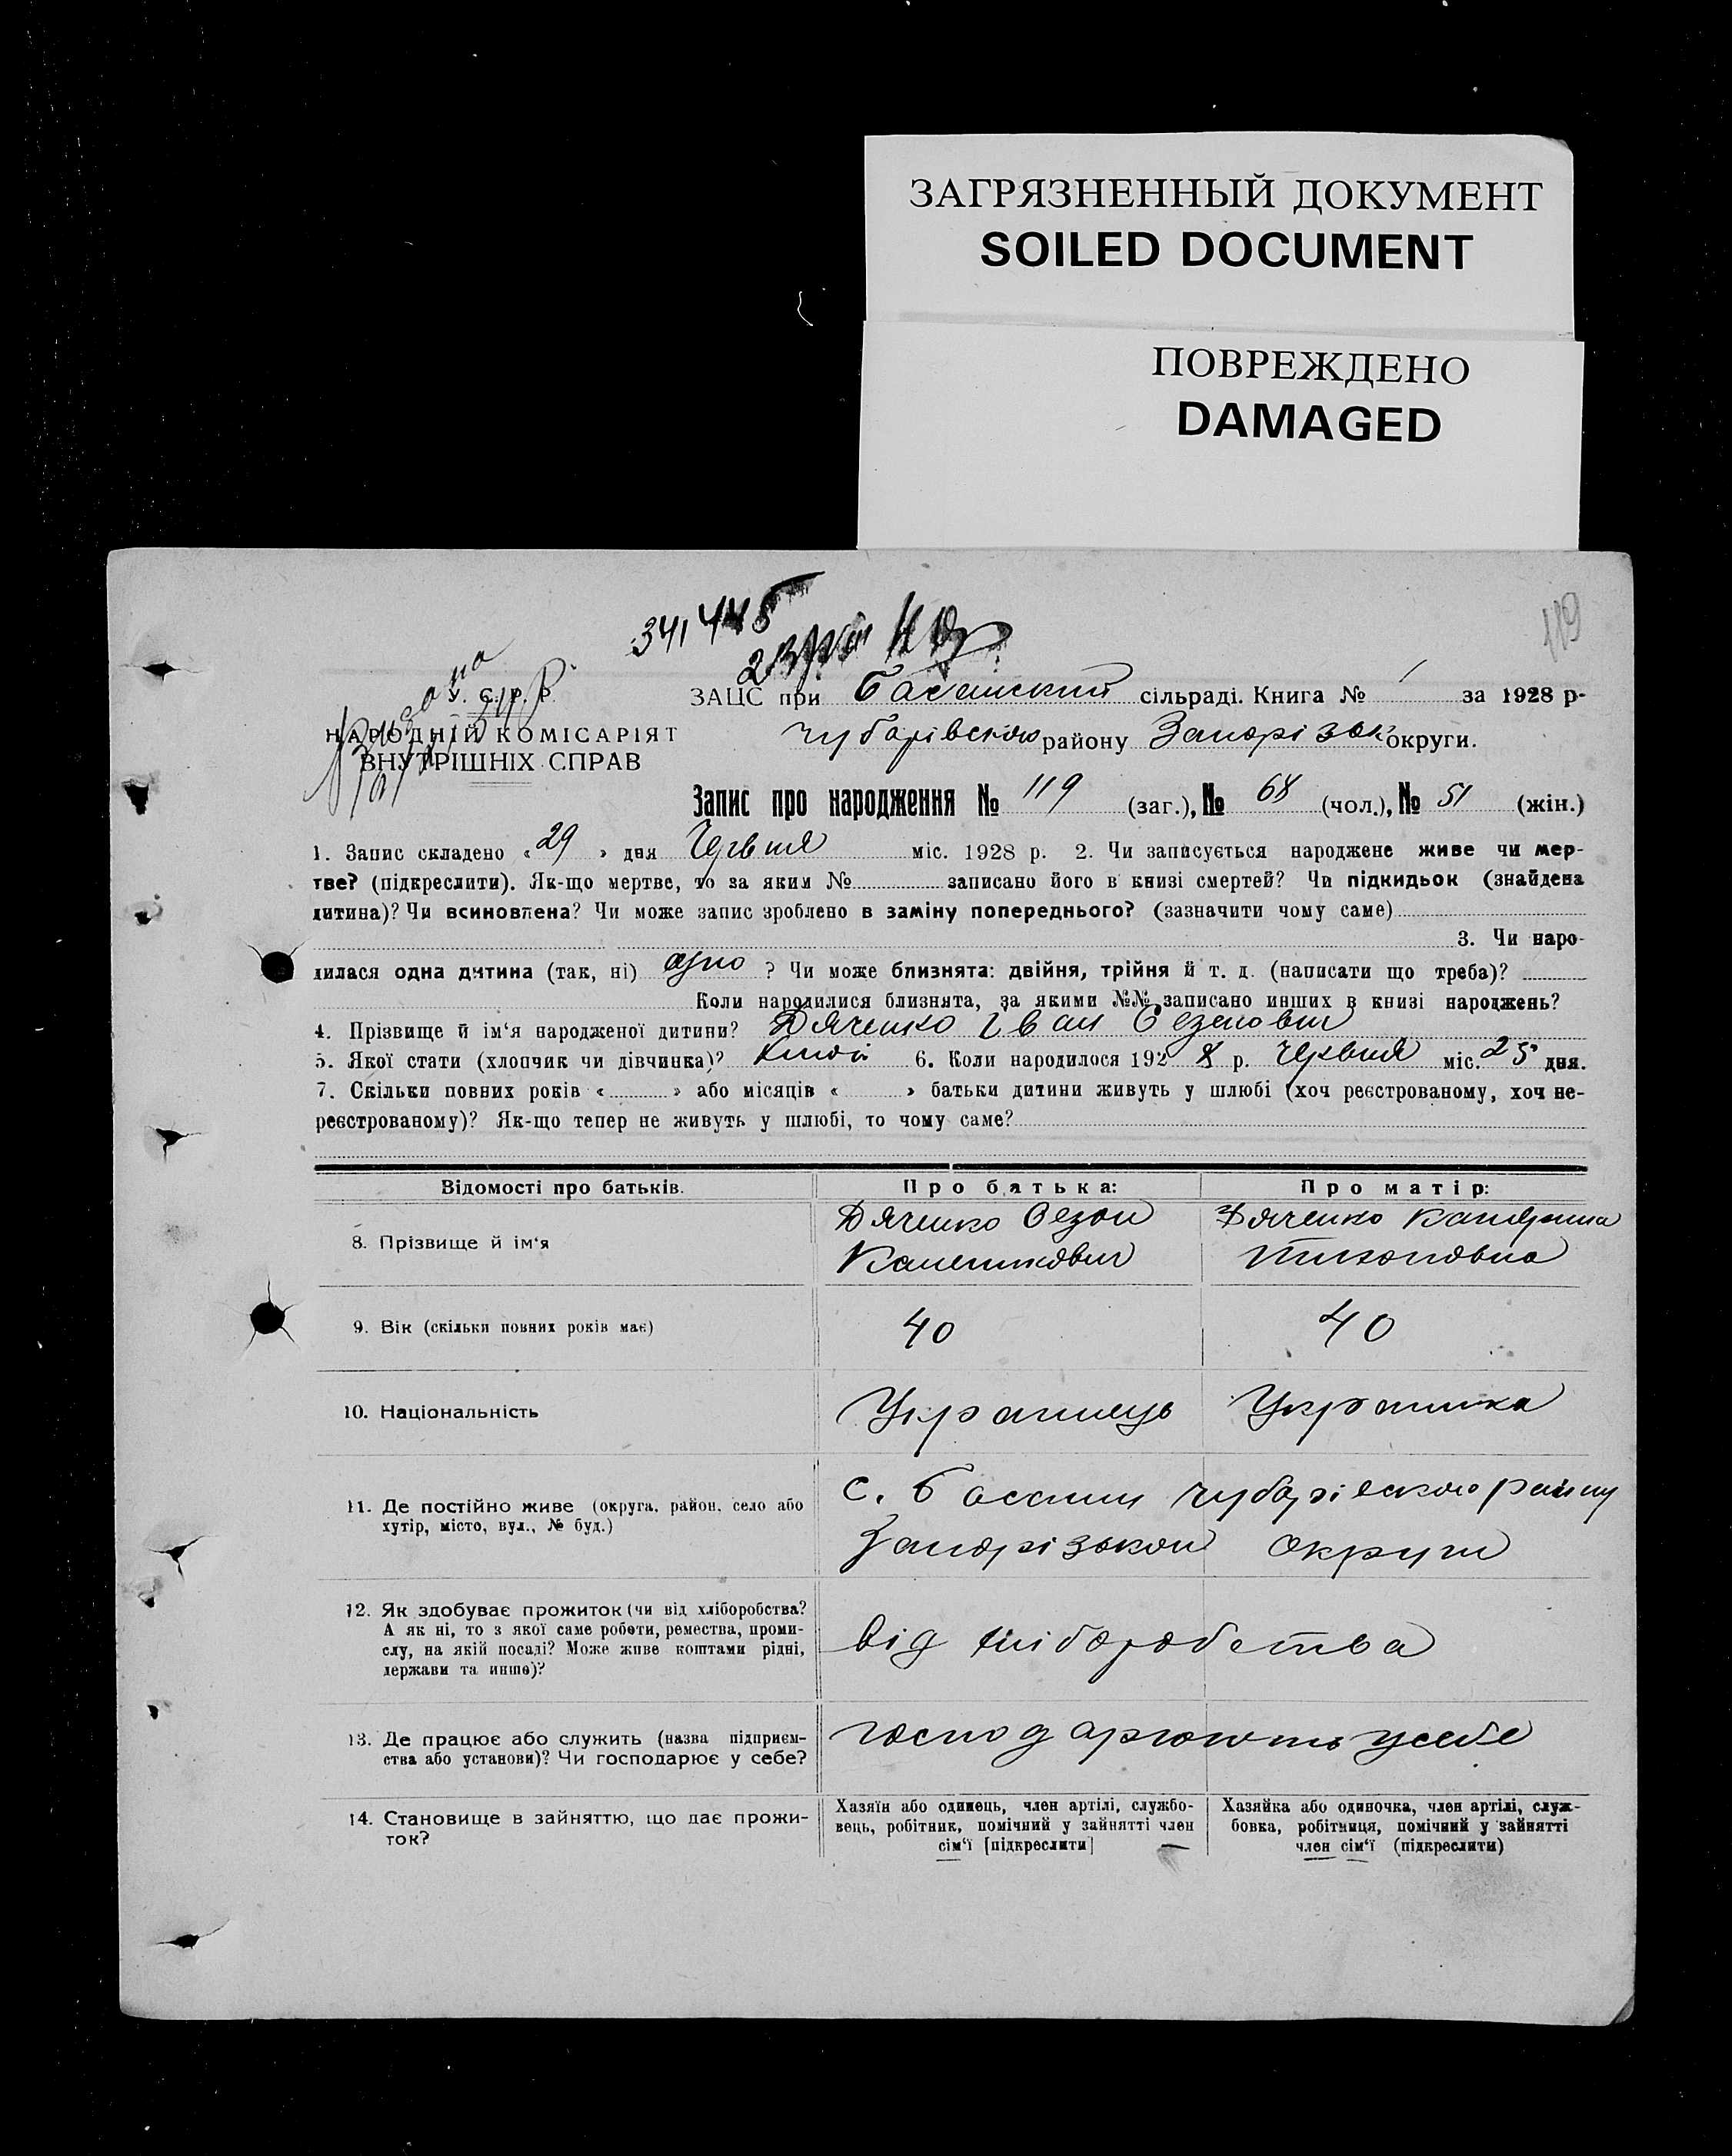 ЗАГРЯЗНЕННЫЙ ДОКУМЕНТ
SOILED DOCUMENT
ПОВРЕЖДЕНО
DAMAGED
119
341445
У. С. Р. Р.
НАРОДНІЙ КОМІСАРІЯТ
ВНУТРІШНІХ СПРАВ
ЗАЦС при Басанский сільраді. Книга № 1 за 1928 р-
Чубарівського району Запорізьк округи.
Запис про народження № 119 (заг.), № 68 (чол.), № 51 (жін.)
1. Запис складено « 29 » дня Червня міс. 1928 р. 2. Чи записується народжене живе чи мер-
тве? (підкреслити). Як-що мертве, то за яким № записано його в книзі смертей? Чи підкидьок (знайдена
дитина)? Чи всиновлена? Чи може запис зроблено в заміну попереднього? (зазначити чому саме)
3. Чи наро-
дилася одна дитина (так, ні) одно ? Чи може близнята: двійня, трійня й т. д. (написати що треба)?
Коли народилися близнята, за якими №№ записано инших в книзі народжень?
4. Прізвище й ім‘я народженої дитини? Дяченко Іван Созонович
5. Якої стати (хлопчик чи дівчинка)? 6. Коли народилося 192 8 р. Червня міс. 25 дня.
7. Скільки повних років « » або місяців « » батьки дитини живуть у шлюбі (хоч реєстрованому, хоч не-
реєстрованому)? Як-що тепер не живуть у шлюбі, то чому саме?
Відомості про батьків. Про батька: Про матір:
8. Прізвище й ім‘я Дяченко Созон Дяченко Катерина
Тихоновна
9. Вік (скільки повних років має) 40 40
10. Національність Українець Українка
11. Де постійно живе (округа, район, село або
хутір, місто, вул., № буд.)
с. Басань Чубарівського району
Запорізькои округи
12. Як здобуває прожиток (чи від хліборобства?
А як ні, то з якої саме роботи, ремества, проми-
слу, на якій посаді? Може живе коштами рідні,
держави та инше)?
від хліборобства
13. Де працює або служить (назва підприєм-
ства або установи)? Чи господарює у себе?
господарюють усебе
14. Становище в зайняттю, що дає прожи-
ток?
Хазяїн або одинець, член артілі, службо-
вець, робітник, помічний у зайнятті член
сім‘ї [підкреслити]
Хазяйка або одиночка, член артілі, служ-
бовка, робітниця, помічний у зайнятті
член сім‘ї (підкреслити)